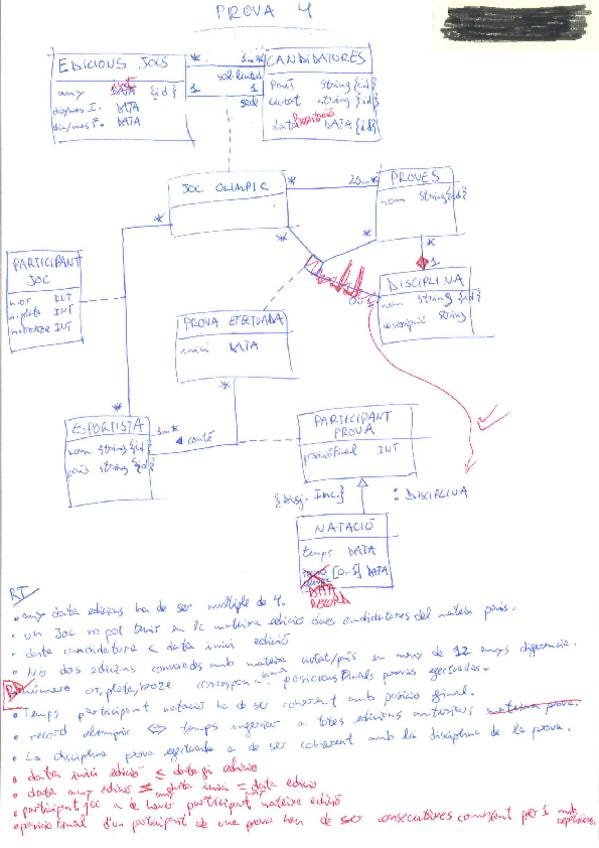 PROVA 4
EDICIONS JOCS
any int DATA {id}
dia/mes I. DATA
dia/mes F. DATA
* 1..*
sol·licitus
1 1
seu
CANDIDATURES
País string {id}
ciutat string {id}
data DATA {id}
JOC OLIMPIC
* 20..*
PROVES
nom string {id}
* 1
DISCIPLINA
nom string {id}
descripció string
PARTICIPANT
JOC
n.or INT
n.plata INT
n.bronze INT
PROVA EFECTUADA
inici DATA
ESPORTISTA
nom string {id}
país string {id}
3..*
conté
PARTICIPANT
PROVA
posicioFinal INT
{Disj. Inc.}
: DISCIPLINA
NATACIÓ
temps DATA
[0..1] DATA
DATA
RECORD
RT
• any data edicions ha de ser multiple de 4.
• un Joc no pot tenir en la mateixa edició dues candidatures del mateix país.
• data candidatura < data inici edició
• No dos edicions convocades amb mateixa ciutat/país en menys de 12 anys diferencia.
• número or, plata, bronze correspon posicions finals proves efectuades.
• Temps participant natació ha de ser coherent amb posició final.
• record olimpic <=> temps inferior a totes edicions anteriors mateixa prova.
• La disciplina prova efectuada a de ser coherent amb la disciplina de la prova.
• data inici edició ≤ data fi edició
• data any edició = any data inici = data edició
• participant joc a de haver participant mateixa edició
• posicio final d'un participant de una prova han de ser consecutives començant per 1 amb repeticions.